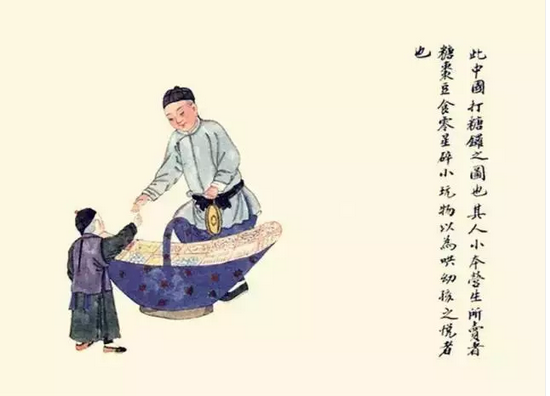 此中國打糖鑼之圖也其人小本營生所賣者
糖棗豆食零星碎小玩物以為哄幼孩之悅者
也